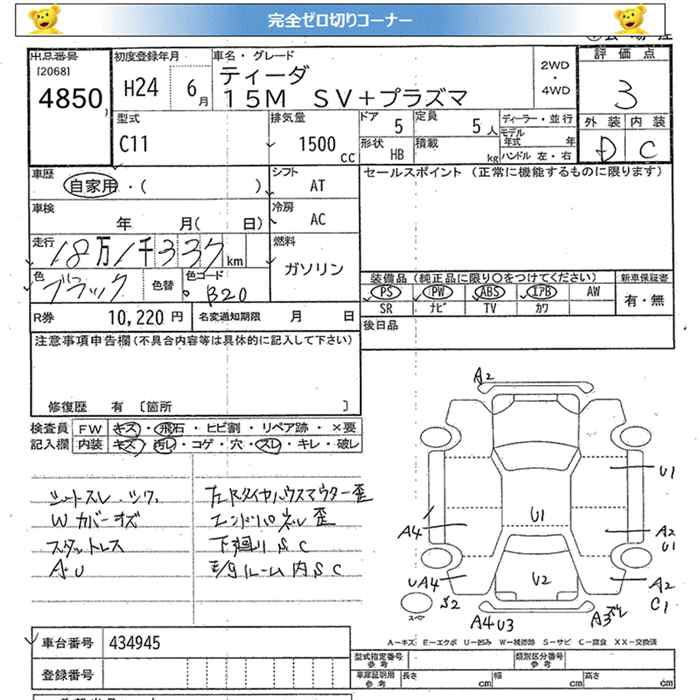 完全ゼロ切りコーナー
出品番号 初度登録年月 車名・グレード 評価点
[2068]
4850 H24 6月 ティーダ
15M SV+プラズマ
2WD
・
4WD
3
型式 排気量 ドア 5 定員 5人 ディーラー・並行 外装 内装
C11 1500cc 形状 HB 積載 kg モデル年式 年
ハンドル 左・右
D C
車歴 自家用・( ) シフト AT セールスポイント (正常に機能するものに限ります)
車検 年 月( 日) 冷房 AC
走行 18万1千337km 燃料 ガソリン
色 ブラック 色替 色コード B20
装備品 (純正品に限り○をつけてください) 新車保証書
PS PW ABS エアB AW 有・無
SR ナビ TV カワ
R券 10,220円 名変通知期限 月 日 後日品
注意事項申告欄(不具合内容等は具体的に記入して下さい)
修復歴 有 [箇所 ]
検査員 FW キズ・飛石・ヒビ割・リペア跡・×要
記入欄 内装 キズ・汚レ・コゲ・穴・スレ・キレ・破レ
シートスレ・シワ
Wカバーキズ
スタットレス
A・U
エンドパネル歪
下廻りSC
A2
U1
U1
A4
A2
U1
UA4
U2
A2
S2
C1
スペア
A4U3
A3
A-キズ E-エクボ U-凹み W-補修跡 S-サビ C-腐食 XX-交換済
車台番号 434945 型式指定番号 参考 類別区分番号 参考
登録番号 車庫証明用 参考 長さ cm 幅 cm 高さ cm